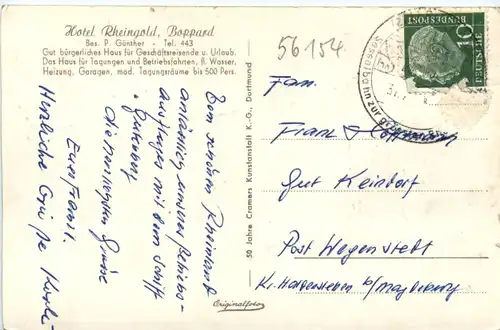 Hotel Rheingold, Boppard
Bes. P. Günther · Tel. 443
Gut bürgerliches Haus für Geschäftsreisende u. Urlaub.
Das Haus für Tagungen und Betriebsfahrten, fl. Wasser,
Heizung, Garagen, mod. Tagungsräume bis 500 Pers.
Vom schönen Rheinland
anlässlich unseres Betriebs-
ausfluges mit dem Schiff
die herzlichsten Grüsse
Eure Fam.
Herzliche Grüße
50 Jahre Cramers Kunstanstalt K.-G., Dortmund
Originalfoto
56154
DEUTSCHE
BUNDESPOST
10
Sesselbahn zur
Fam.
Franz
Gut Keindorf
Post Wegenstedt
Kr. Haldensleben b/Magdeburg